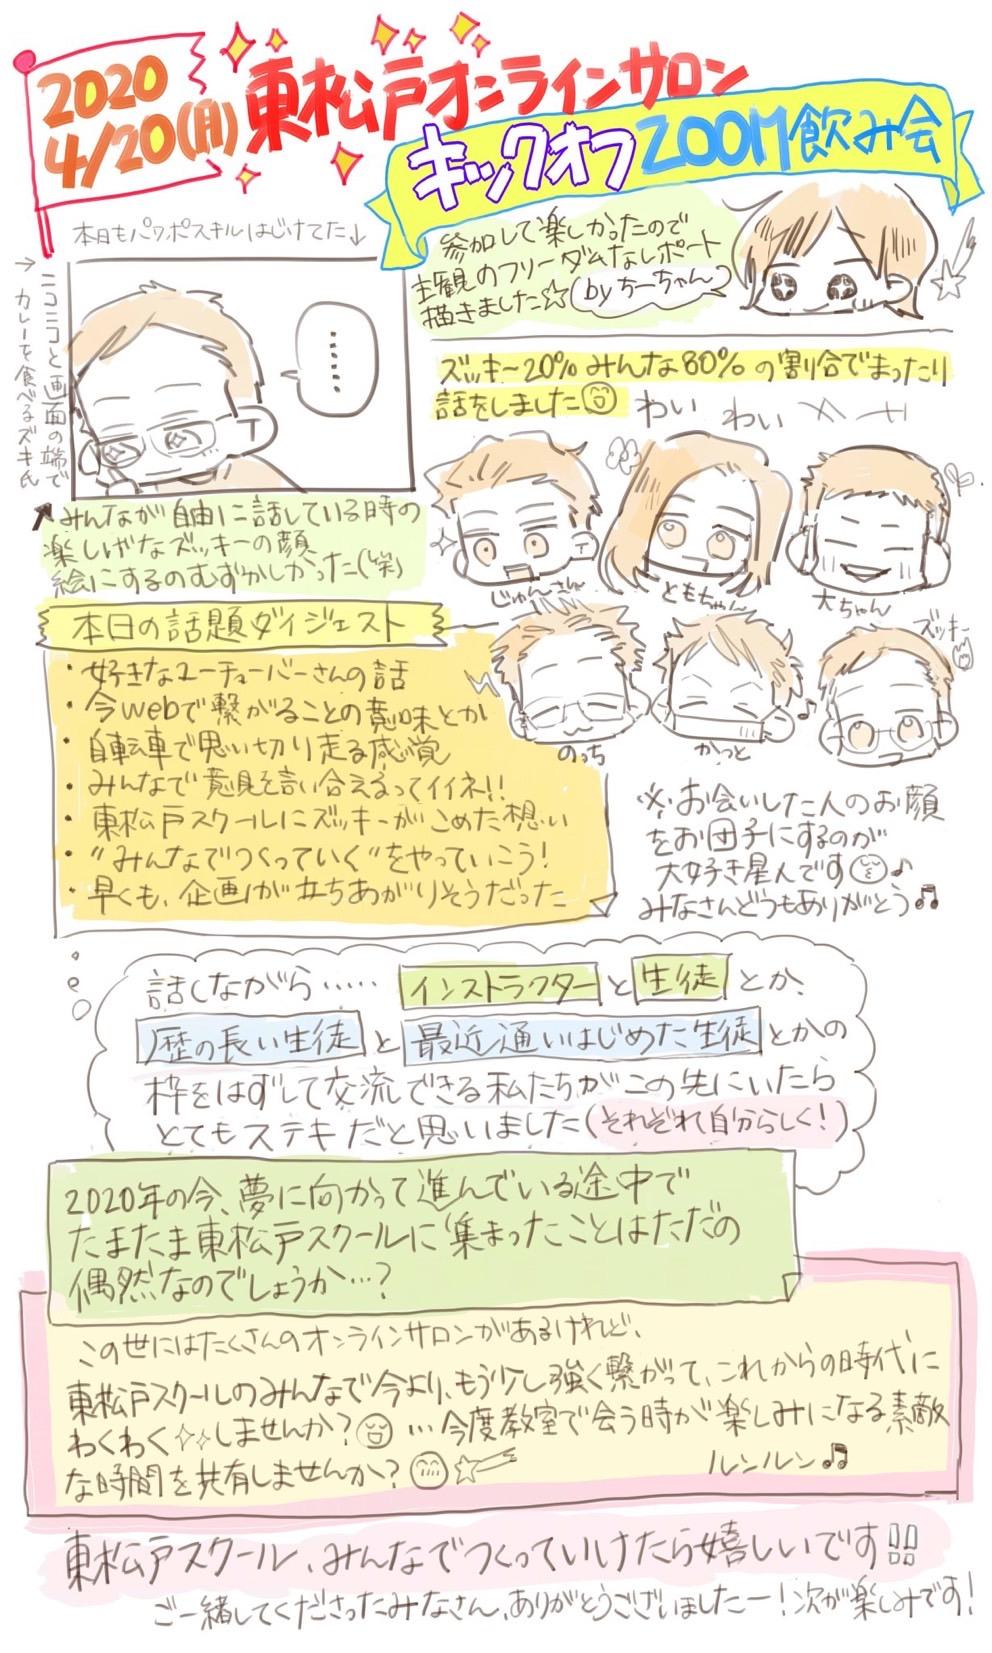 2020
4/20(月)
東松戸オンラインサロン
キックオフ ZOOM飲み会
本日もパワポスキルはじけてた↓
参加して楽しかったので
主観のフリーダムなレポート
描きました☆ by ちーちゃん
→ニコニコと画面の端で
カレーを食べるズッキ氏
……
ズッキー20% みんな80% の割合でまったり
話をしました
わい わい
みんなが自由に話している時の
楽しげなズッキーの顔
絵にするのむずかしかった(笑)
じゅんさん
ともちゃん
大ちゃん
のっち
かっと
ズッキー
本日の話題ダイジェスト
・好きなユーチューバーさんの話
・今webで繋がることの意味とか
・自転車で思い切り走る感覚
・みんなで意見を言い合えるってイイネ!!
・東松戸スクールにズッキーがこめた想い
・"みんなでつくっていく"をやっていこう!
・早くも、企画が立ちあがりそうだった
※お会いした人のお顔
をお団子にするのが
大好き星人です♪
みなさんどうもありがとう♫
話しながら‥‥‥ インストラクターと生徒とか、
歴の長い生徒と最近通いはじめた生徒とかの
枠をはずして交流できる私たちがこの先にいたら
とてもステキだと思いました(それぞれ自分らしく!)
2020年の今、夢に向かって進んでいる途中で
たまたま東松戸スクールに集まったことはただの
偶然なのでしょうか…?
この世にはたくさんのオンラインサロンがあるけれど、
東松戸スクールのみんなで今より、もう少し強く繋がって、これからの時代に
わくわくしませんか? …今度教室で会う時が楽しみになる素敵
な時間を共有しませんか?
ルンルン♫
東松戸スクール、みんなでつくっていけたら嬉しいです!!
ご一緒してくださったみなさん、ありがとうございましたー!次が楽しみです!